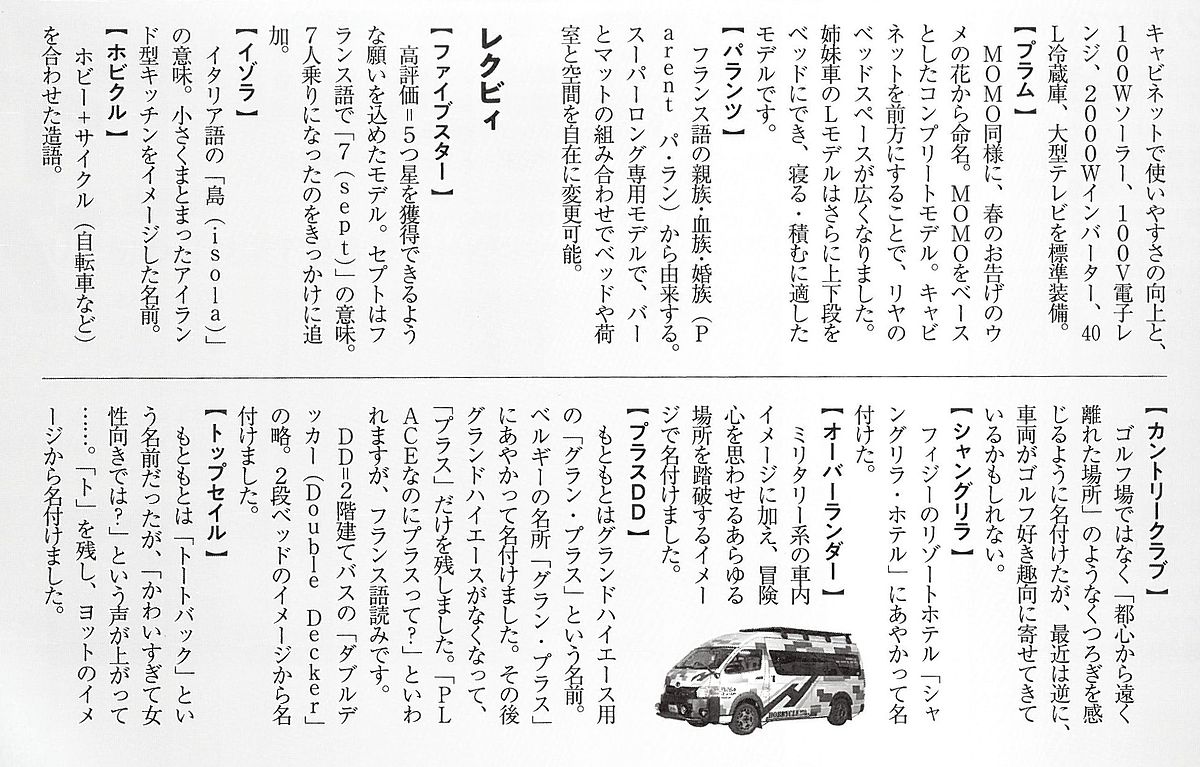 キャビネットで使いやすさの向上と、
100Wソーラー、100V電子レ
ンジ、2000Wインバーター、40
L冷蔵庫、大型テレビを標準装備。
【プラム】
MOMO同様に、春のお告げのウ
メの花から命名。MOMOをベース
としたコンプリートモデル。キャビ
ネットを前方にすることで、リヤの
ベッドスペースが広くなりました。
姉妹車のLモデルはさらに上下段を
ベッドにでき、寝る・積むに適した
モデルです。
【パランツ】
フランス語の親族・血族・婚族（P
arent パ・ラン）から由来する。
スーパーロング専用モデルで、バー
とマットの組み合わせでベッドや荷
室と空間を自在に変更可能。
レクビィ
【ファイブスター】
高評価＝5つ星を獲得できるよう
な願いを込めたモデル。セプトはフ
ランス語で「7（sept）」の意味。
7人乗りになったのをきっかけに追
加。
【イゾラ】
イタリア語の「島（isola）」
の意味。小さくまとまったアイラン
ド型キッチンをイメージした名前。
【ホビクル】
ホビー＋サイクル（自転車など）
を合わせた造語。
【カントリークラブ】
ゴルフ場ではなく「都心から遠く
離れた場所」のようなくつろぎを感
じるように名付けたが、最近は逆に、
車両がゴルフ好き趣向に寄せてきて
いるかもしれない。
【シャングリラ】
フィジーのリゾートホテル「シャ
ングリラ・ホテル」にあやかって名
付けた。
【オーバーランダー】
ミリタリー系の車内
イメージに加え、冒険
心を思わせるあらゆる
場所を踏破するイメー
ジで名付けました。
【プラスDD】
もともとはグランドハイエース用
の「グラン・プラス」という名前。
ベルギーの名所「グラン・プラス」
にあやかって名付けました。その後
グランドハイエースがなくなって、
「プラス」だけを残しました。「PL
ACEなのにプラスって？」といわ
れますが、フランス語読みです。
DD＝2階建てバスの「ダブルデ
ッカー（Double Decker）」
の略。2段ベッドのイメージから名
付けました。
【トップセイル】
もともとは「トートバック」とい
う名前だったが、「かわいすぎて女
性向きでは？」という声が上がって
……。「ト」を残し、ヨットのイメ
ージから名付けました。
HOBBYCLE